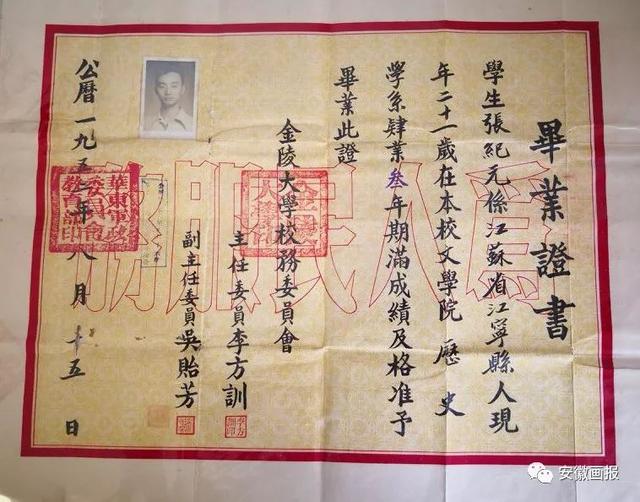 畢業證書
學生張紀元係江蘇省江寧縣人現
年二十一歲在本校文學院歷史
學系肄業叁年期滿成績及格准予
畢業此證
金陵大學校務委員會
主任委員李方訓
副主任委員吳貽芳
公曆一九五年八月十五日
爲人民服務
華東軍政委員會教育部印
安徽画报